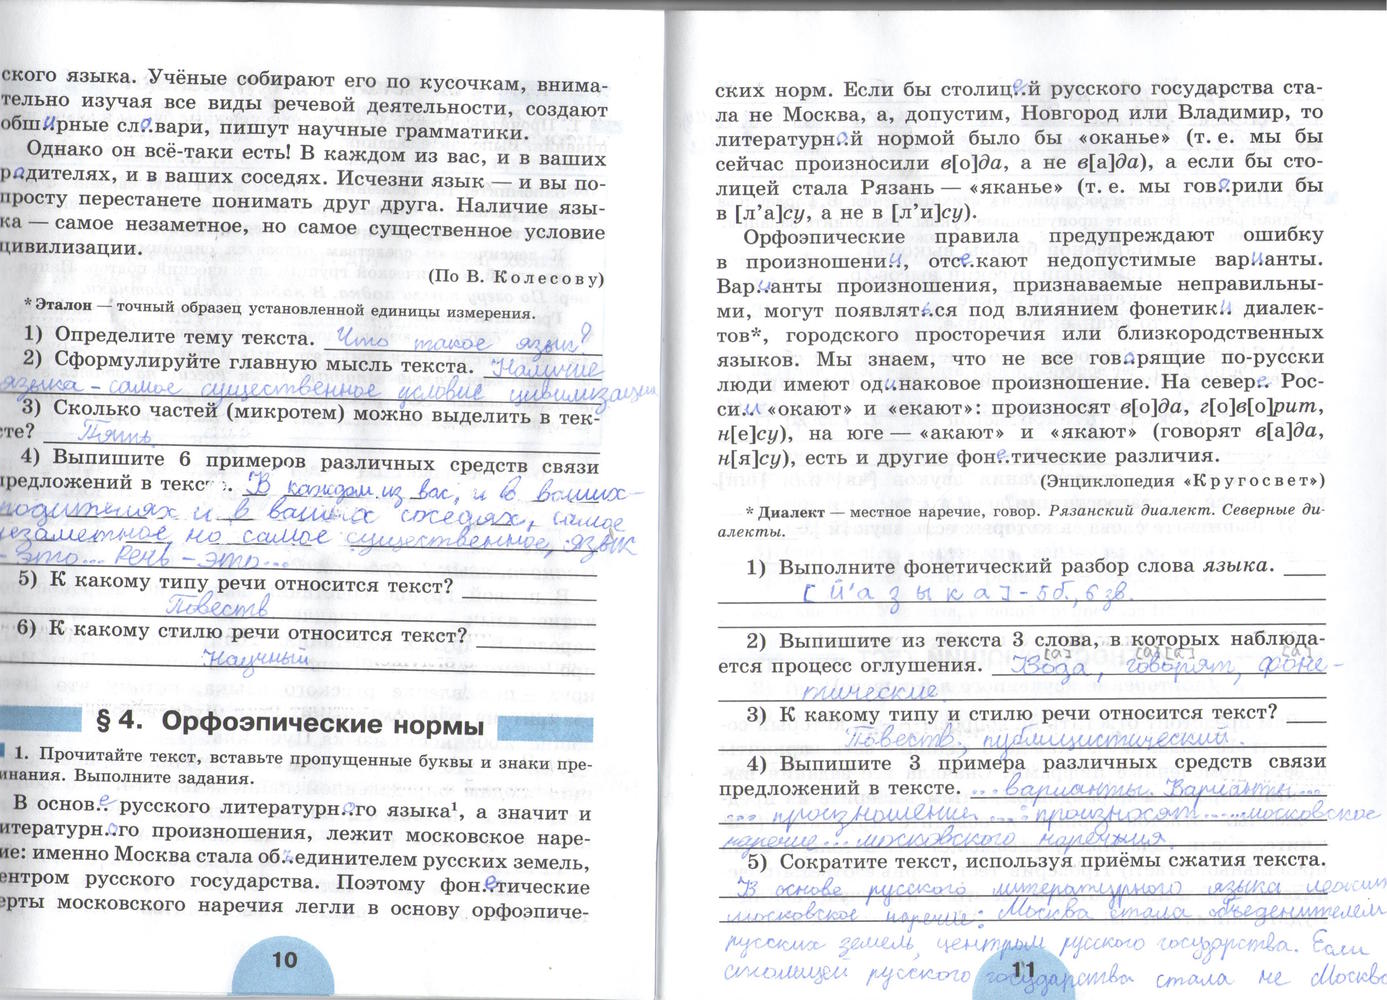 ского языка. Учёные собирают его по кусочкам, внима-
тельно изучая все виды речевой деятельности, создают
обширные словари, пишут научные грамматики.
Однако он всё-таки есть! В каждом из вас, и в ваших
родителях, и в ваших соседях. Исчезни язык — и вы по-
просту перестанете понимать друг друга. Наличие язы-
ка — самое незаметное, но самое существенное условие
цивилизации.
(По В. Колесову)
* Эталон — точный образец установленной единицы измерения.
1) Определите тему текста. Что такое язык?
2) Сформулируйте главную мысль текста. Наличие
языка – самое существенное условие цивилизации
3) Сколько частей (микротем) можно выделить в тек-
сте? Пять
4) Выпишите 6 примеров различных средств связи
предложений в тексте. В каждом из вас, и в ваших
родителях и в ваших соседях, самое
незаметное, но самое существенное, язык
- это... речь – это...
5) К какому типу речи относится текст?
Повеств
6) К какому стилю речи относится текст?
Научный
§ 4. Орфоэпические нормы
1. Прочитайте текст, вставьте пропущенные буквы и знаки пре-
инания. Выполните задания.
В основе русского литературного языка¹, а значит и
итературного произношения, лежит московское наре-
ие: именно Москва стала объ.единителем русских земель,
ентром русского государства. Поэтому фонетические
ерты московского наречия легли в основу орфоэпиче-
10
ских норм. Если бы столицей русского государства ста-
ла не Москва, а, допустим, Новгород или Владимир, то
литературной нормой было бы «оканье» (т. е. мы бы
сейчас произносили в[о]да, а не в[а]да), а если бы сто-
лицей стала Рязань — «яканье» (т. е. мы говорили бы
в [л'а]су, а не в [л'и]су).
Орфоэпические правила предупреждают ошибку
в произношении, отсе.кают недопустимые варианты.
Варианты произношения, признаваемые неправильны-
ми, могут появлятьс.ся под влиянием фонетики диалек-
тов*, городского просторечия или близкородственных
языков. Мы знаем, что не все говарящие по-русски
люди имеют одинаковое произношение. На севере Рос-
сии «окают» и «екают»: произносят в[о]да, г[о]в[о]рит,
н[е]су), на юге — «акают» и «якают» (говорят в[а]да,
н[я]су), есть и другие фоне.тические различия.
(Энциклопедия «Кругосвет»)
* Диалект — местное наречие, говор. Рязанский диалект. Северные ди-
алекты.
1) Выполните фонетический разбор слова языка.
[й'а з ы к а] - 5 б., 6 зв.
2) Выпишите из текста 3 слова, в которых наблюда-
[а] [а] [а] [а]
ется процесс оглушения. Вода, говорят, фоне-
тические
3) К какому типу и стилю речи относится текст?
Повеств, публицистический.
4) Выпишите 3 примера различных средств связи
предложений в тексте. ... варианты. Варианты ...
... произношение ... произносят ... московское
наречие ... московского наречия
5) Сократите текст, используя приёмы сжатия текста.
В основе русского литературного языка лежит
московское наречие: Москва стала объеденителем
русских земель, центром русского государства. Если
столицей русского государства стала не Москва
11